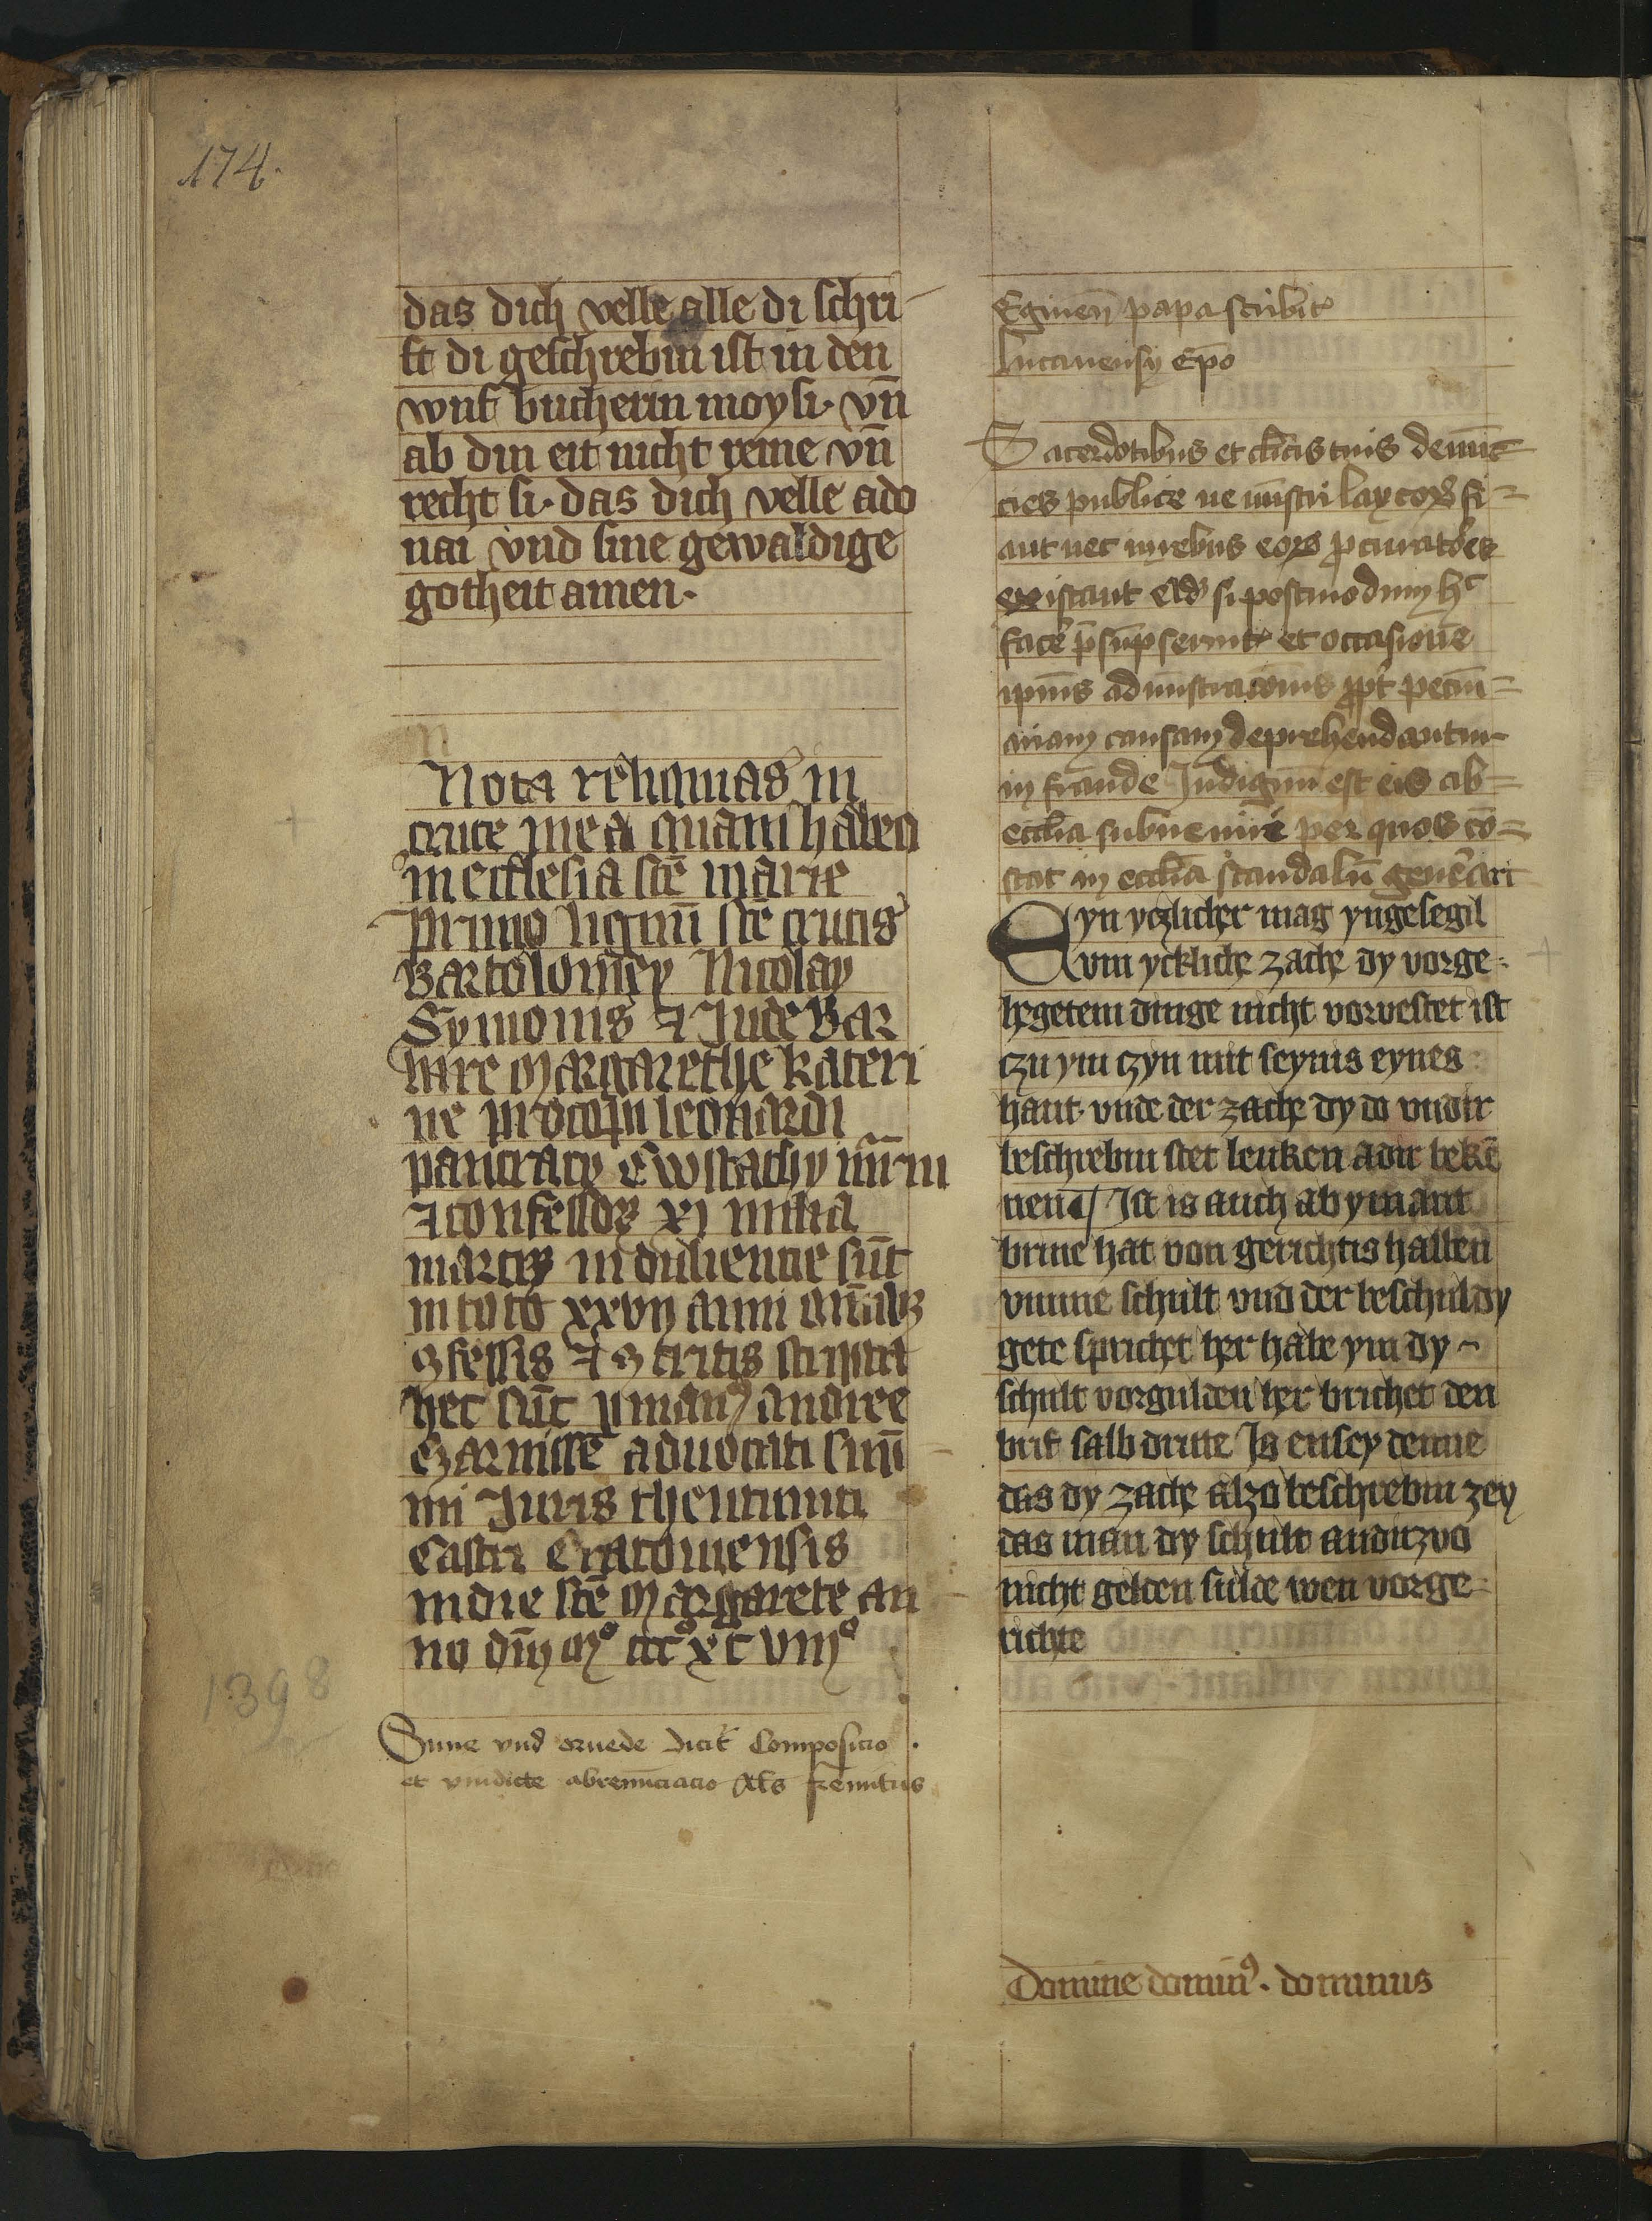 174.
das dich velle alle di schri
ft di geschrebin ist in den
wnf bucherin moysi. vn̄
ab din eit nicht reine vn̄
recht si. das dich velle ado
nai vnd sine gewaldige
gotheit amen.
Nota reliquias in
cruce mea quam habeo
in ecclesia scē marie
primo lignū scē crucis
Bartolomey Nicolay
Symonis ⁊ Jude Bar
bare Margarethe kateri
ne procopii leonardi
pancracy Ewstachy
⁊ confessoꝝ xj milia
martꝝ induliencie sūt
in toto xxvij anni
ꝯfessis ⁊ ꝯtritis scripta
hec sūt ꝑ manꝰ andree
czarnisse advocati
mi Juris theutunici
Castri Cracouiensis
in die scē Margarete an
no dnī Mº cccº xc viijº
1398
Sune vnd orvede dicit̄ Composicio
et vindicte abrenūciacio
Egineñ papa scribit
lucanensy ep̄o
Sacerdotibus et cl̄icis tuis denūc
cies publice ne mīstri laycoꝝ fi=
ant nec in rebus eoꝝ ꝓcuratores
existant si postmodum hᶜ
facē p̄sūpserint et occasione
ipīus admīstracōnis ꝓpt̄ pecūi=
ariam causam deprehendantur
in fraude Indignū est eis ab=
ecclīa subueniri per quos cō=
stat in ecclīa scandalū gen̄ari
Eyn yczlicher mag yngesegil
vm yckliche zache dy vorge=
hegetem dinge nicht vorvestet ist
czu ym czyn mit seynis eynes
hant. vnde der zache dy do vndir
beschrebin stet leuken adir bekē
nen¶ Ist is auch ab ymant
brine hat von gerichtis hallen
vmme schult vnd der beschuldy
gete sprichet her habe ym dy
schult vorgulden her brichet den
brif salb dritte Js ensey denne
das dy zache alzo beschrebin zey
das man dy schult andirzvo
nicht gelden sulde wen vorge
richte
Domine dominꝰ. dominus